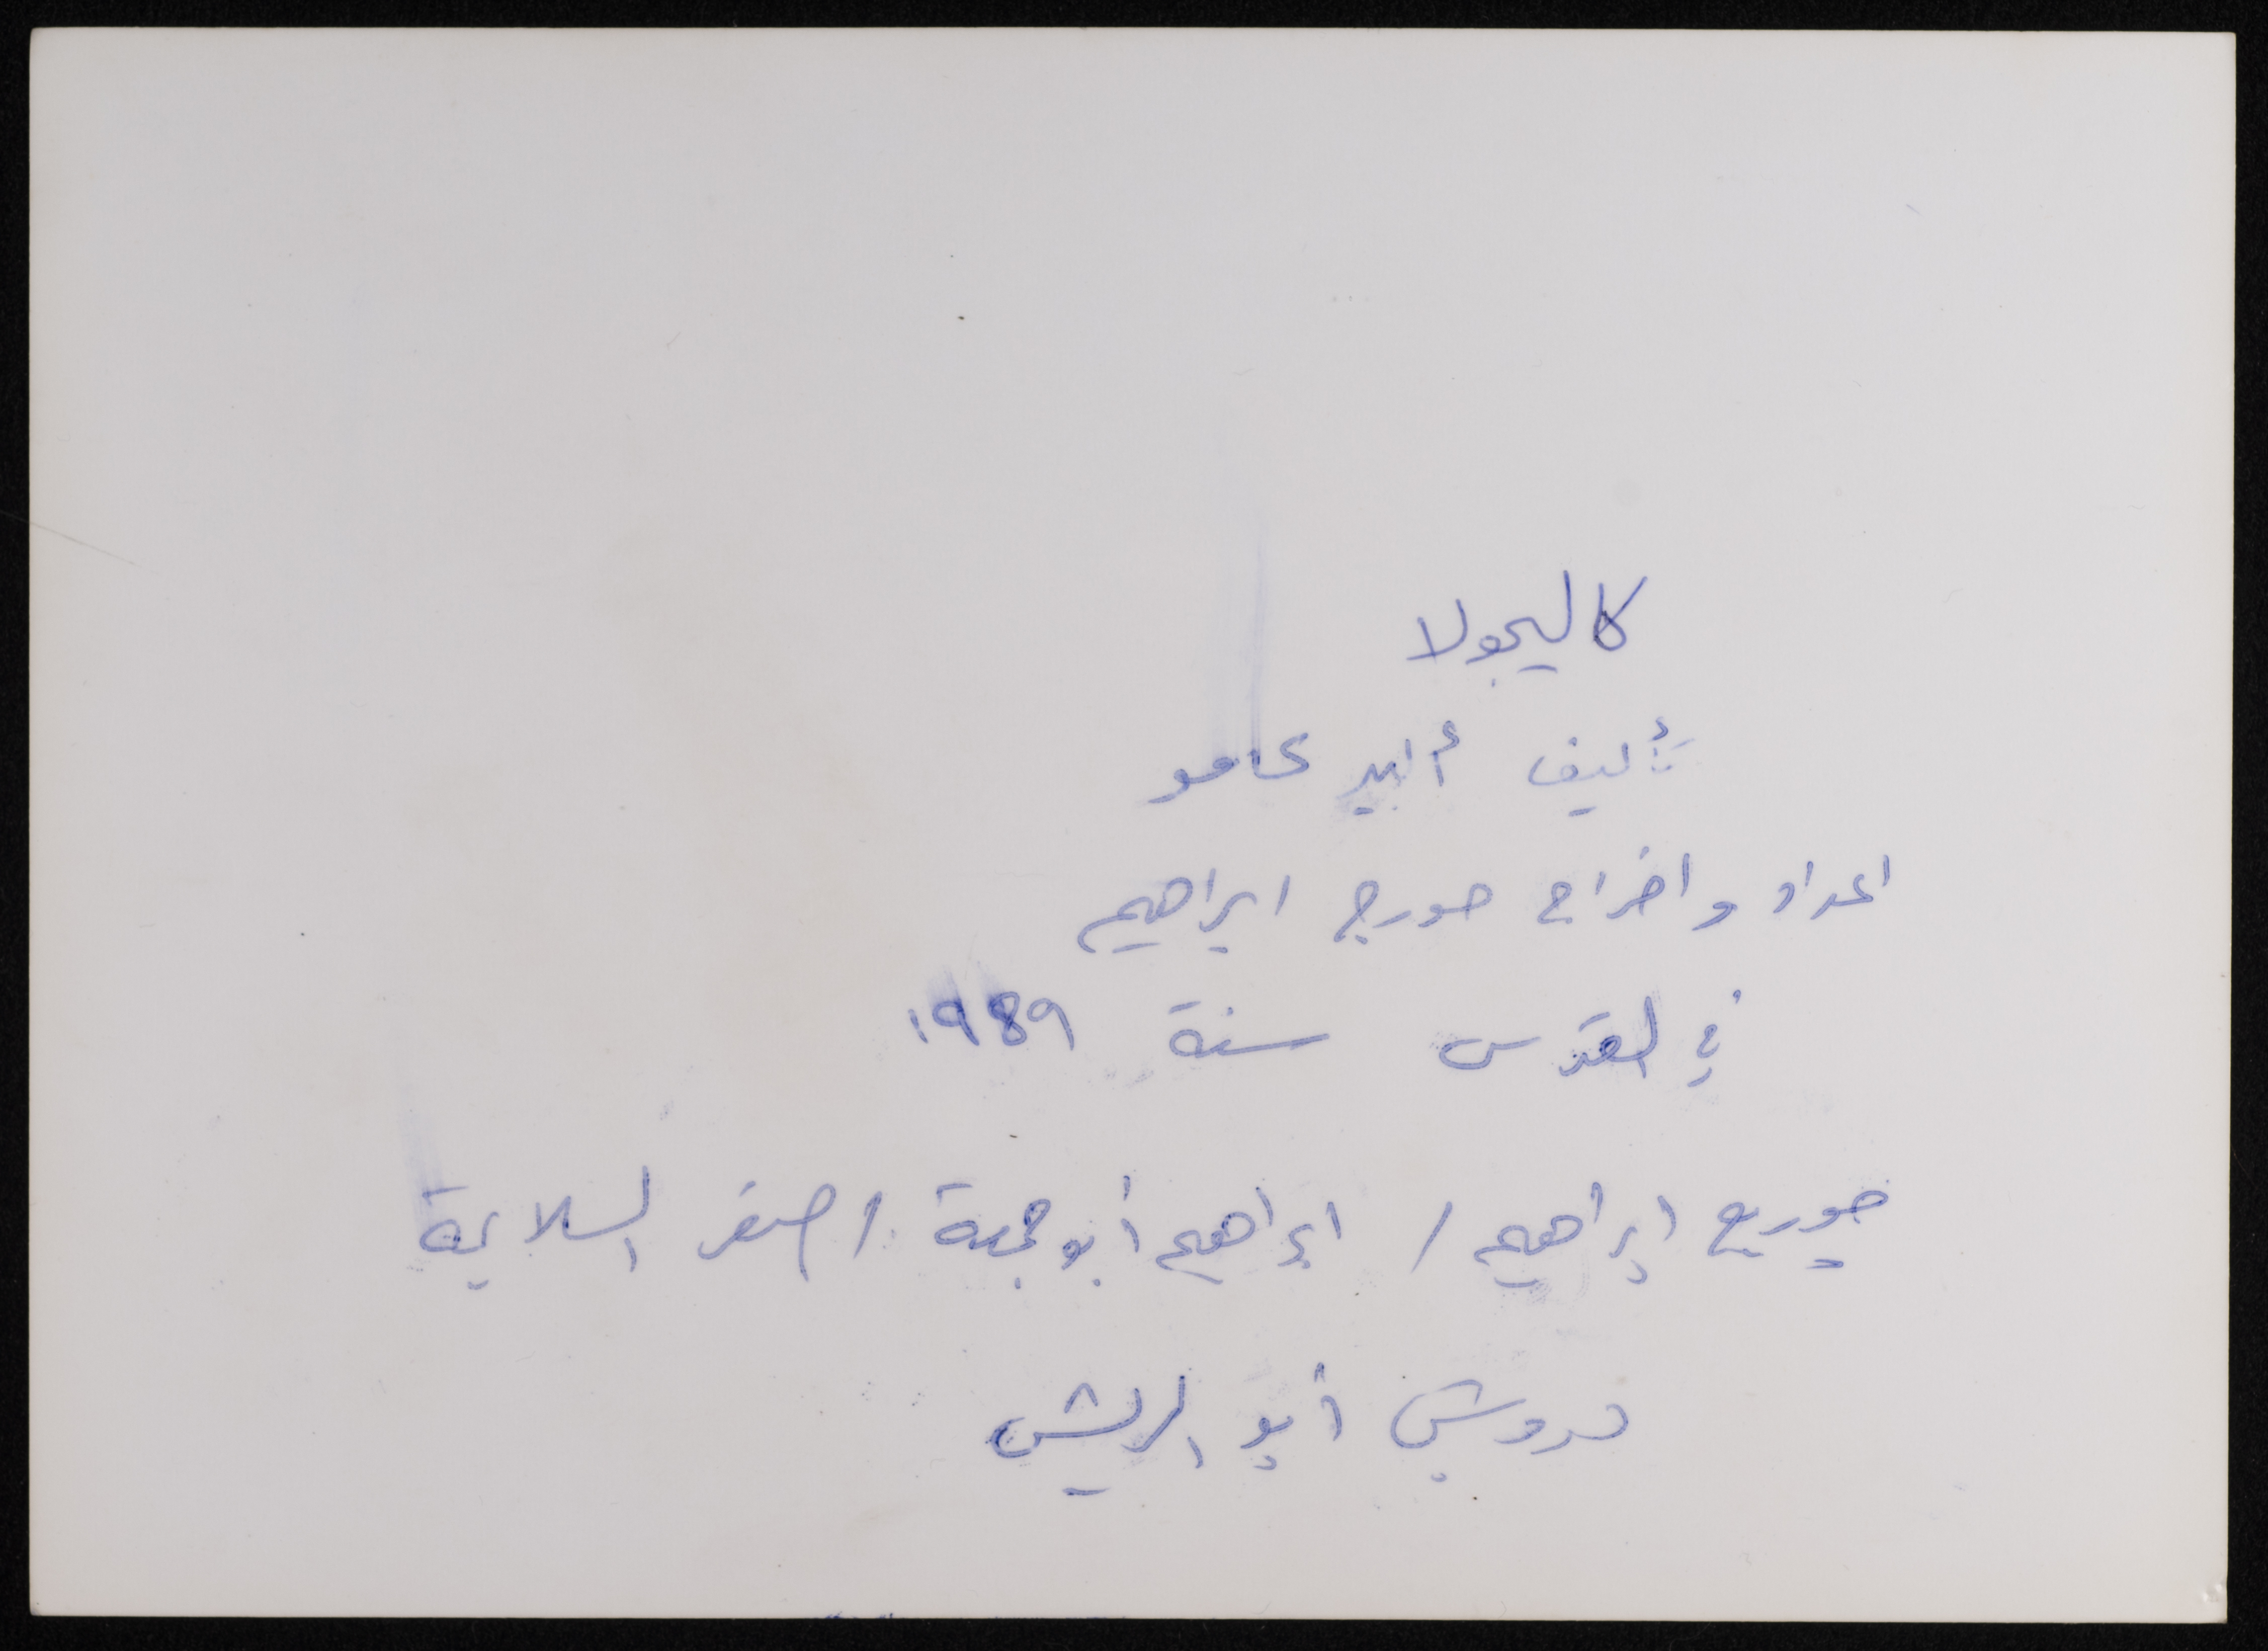 كاليجولا
تأليف ألبير كامو
اعداد واخراج جورج ابراهيم
في القدس سنة 1989
جورج ابراهيم / ابراهيم أبو عجمة / السلايمة
درويش أبو الريش